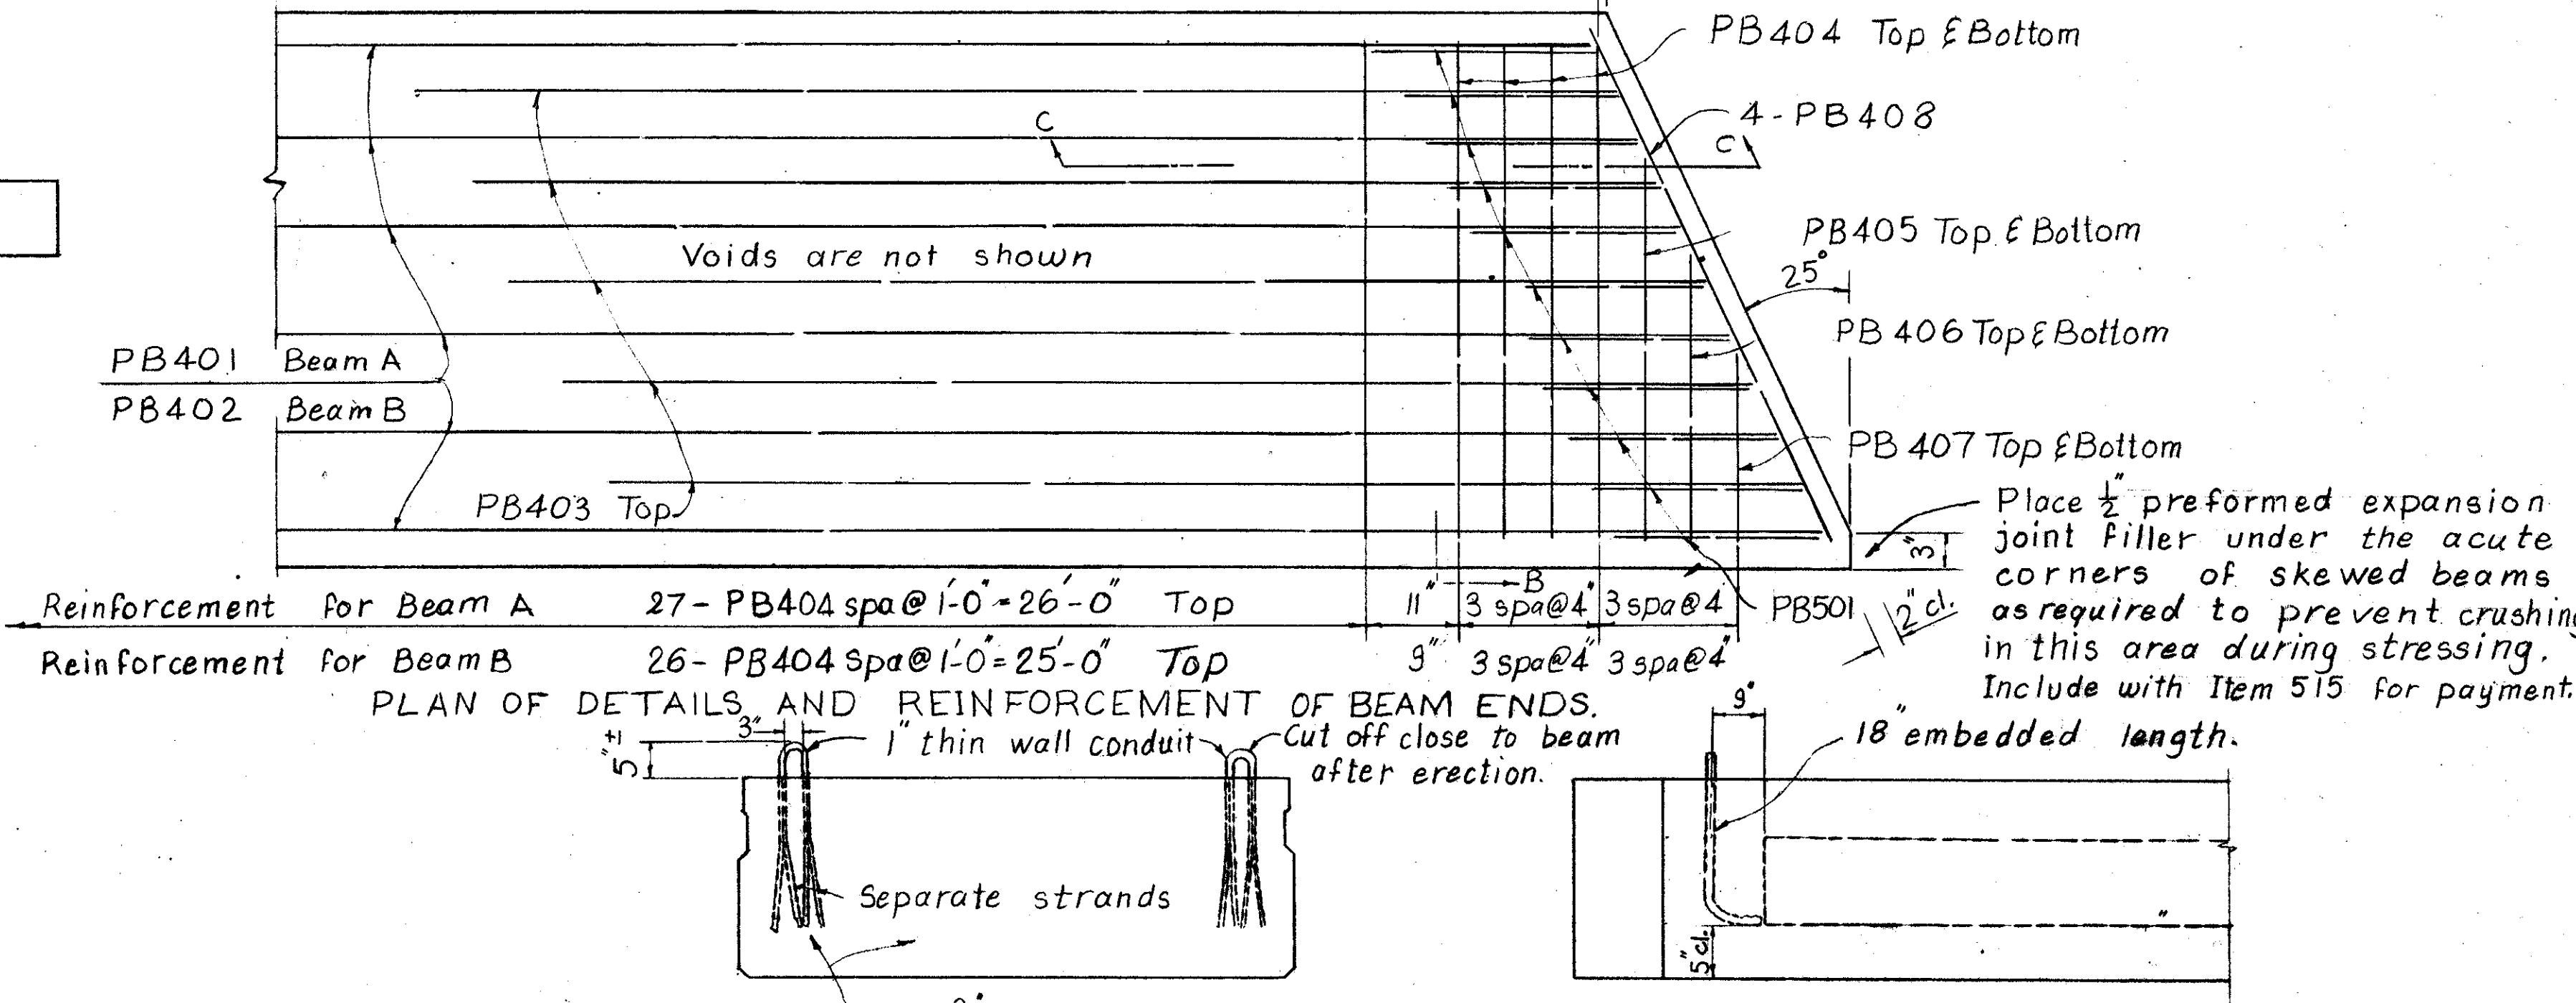 PB404 Top & Bottom
4-PB408
C
C
PB405 Top & Bottom
25°
Voids are not shown
PB 406 Top & Bottom
PB401 Beam A
PB402 Beam B
PB 407 Top & Bottom
PB403 Top
3"
Place ½" preformed expansion
joint filler under the acute
corners of skewed beams
as required to prevent crushing
in this area during stressing.
Include with Item 515 for payment.
B
Reinforcement for Beam A 27- PB404 spa@ 1'-0" = 26'-0" Top 11" 3 spa@4" 3 spa@4" PB501 2" cl.
Reinforcement for Beam B 26- PB404 spa@ 1'-0" = 25'-0" Top 9" 3 spa@4" 3 spa@4"
PLAN OF DETAILS AND REINFORCEMENT OF BEAM ENDS.
3"
5"±
1" thin wall conduit
Cut off close to beam
after erection.
9"
18" embedded length.
Separate strands
5" cl.